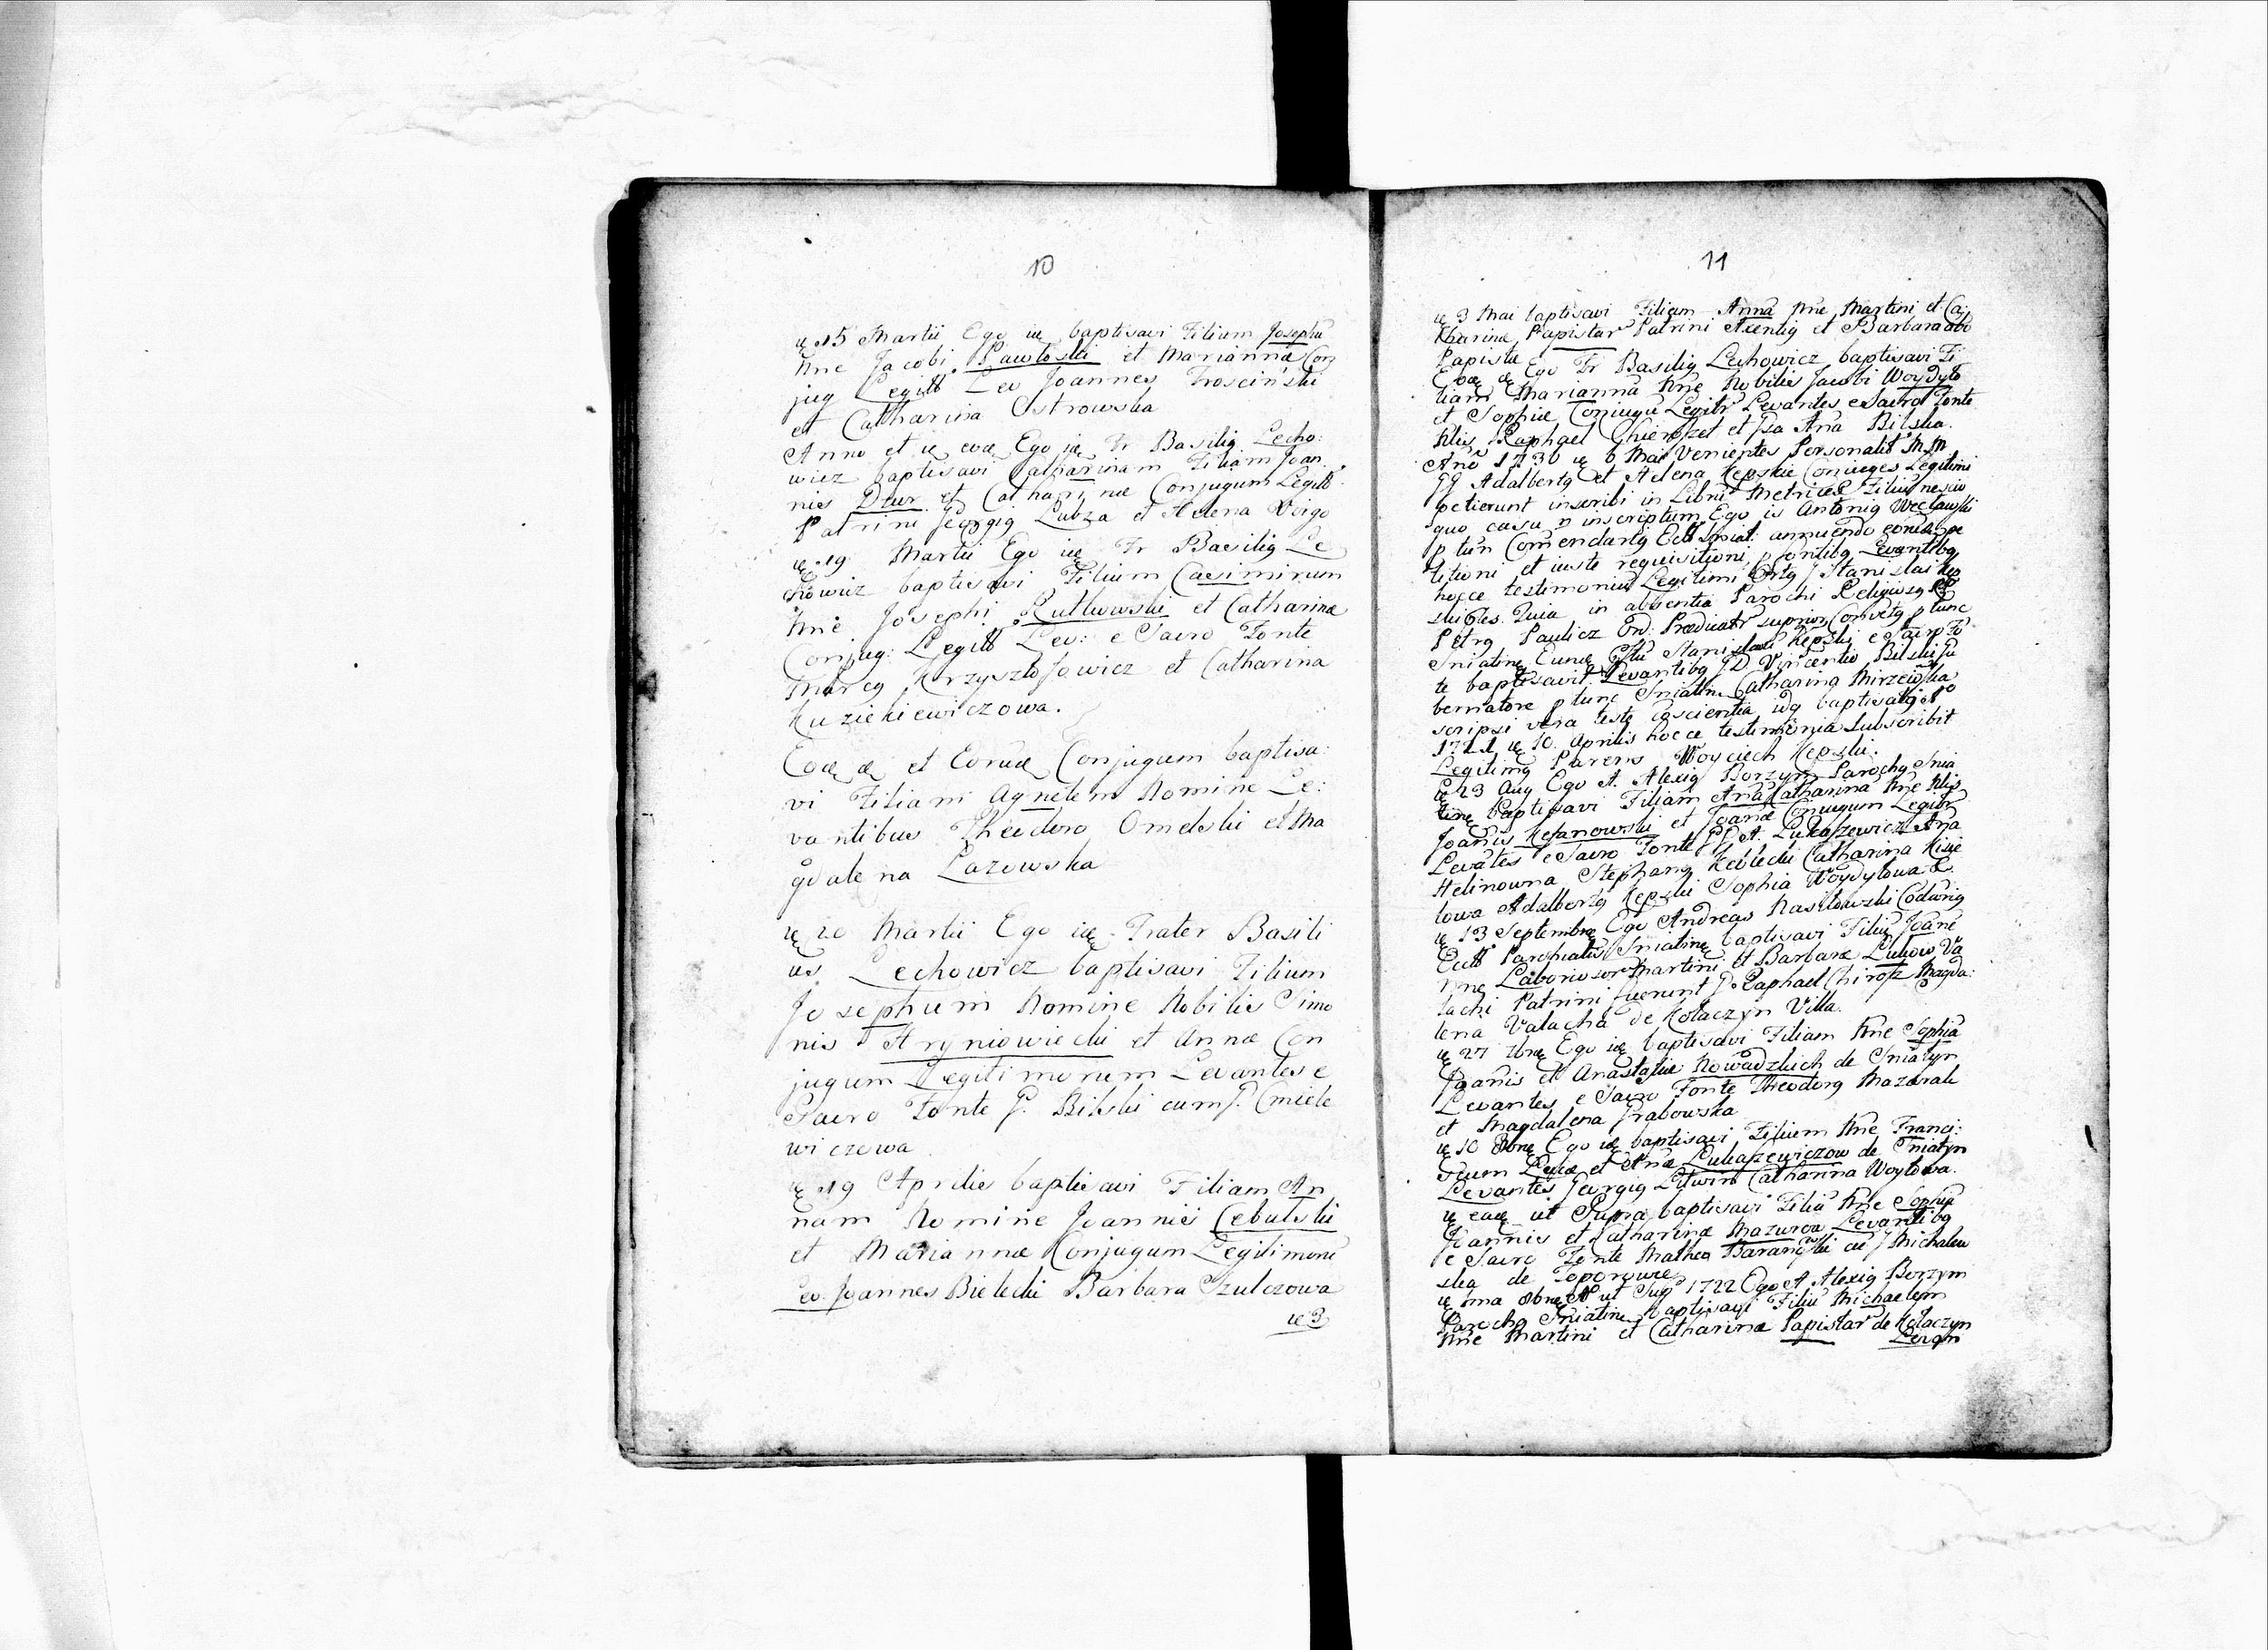 10
ię 15 Martii Ego ię baptisavi Filium Josephū
Nne Jacobi Pawloski et Marianna Con
jug Legitt Lev Joannes Trosciński
et Catharina Ostrowska
Anno et ię eoę Ego ię Fr Basilig Lecho:
wicz baptisavi Catharinam Filiam Joan
nis Dzur et Catharinæ Conjugum Legitt
Patrini Georgig Lubza et Helena Woigo
ię 19 Martii Ego ię Fr Basilig Le
chowicz baptisavi Filium Casimirum
Nne Josephi Rutkowski et Catharinæ
Conjug: Legitt Lev: e Sacro Fonte
Marcg Krzysztofowicz et Catharina
Kuziekiewiczowa.
Eoę et Conjugum baptisa:
vi Filiam Agnetem Nomine Le:
vantibus Theodoro Omelski et Ma
gdalena Lazowska
ię 20 Martii Ego ię Frater Basili
us Lechowicz baptisavi Filium
Josephum Nomine Nobilis Simo
nis Aryniowiecki et Annæ Con
jugum Legitimorum Levantes e
Sacro Fonte J. Bilski cum J. Cmiele
wiczowa
ię 19 Aprilis baptisavi Filiam An
nam Nomine Joannis Cebulski
et Mariannæ Conjugum Legitimorū
Lev. Joannes Bielecki Barbara Szulczowa
ię 3
11
ię 3 Mai baptisavi Filiam Anna Nne Martini et Ca
tharinæ Papistar Patrini Axentig et Barbara abo
Papistæ
Ego Fr Basilig Lechowicz baptisavi Fi
liam Marianna Nne Nobilis Jacobi Woydylo
et Sophiæ Conjugū Legitr Levantes e Sacro Fonte
Nlis Raphael Chierofzet et Gsa Ana Bilska.
Ano 1730 ię 6 Mai Venientes Personalit M M
GG Adalbertg et Helena Kępskie Coniuges Legitimi
petierunt inscribi in Libri Metrices Filiū nescio
quo casu n inscriptum Ego is Antonig Węclawski
p tūn Comendarig Ecll Sniat: annuendo pe
titioni et iuste requisitioni Levantibg
hocce testimoniū Legitimi Stanislai Kęp
Quia in absentia Parochi Religiosg
Petrg Paulicz Ord: Prædicatr suprior Convētg p tunc
Sniatinę Stanislai Kępski e Sacro Fo
te baptisavit. Levantibg GD Vincentio Bilski Gu
bernatore p tunc Sniatin Catharina Mirzewska
scripsi vera teste cōscientia baptisatg
1721 ię 10. Aprilis hocce testimonia subscribit
Legitimg Parens Woyciech Kępski.
ię 23 Aug Ego A. Alexig Borzym Parochg Snia
tinę Baptisavi Filiam Anā Catharina Nne Nlis
Joanis Kefanowski et Joanæ Conjugum Legitr
Levātes e Sacro Fonte GG A. Lukafzewicz Ana
Helinowna Stephang Kebiecki Catharina Kisie
lowa Adalbertg Kępski Sophia Woydylowa
ię 13 Septembrę Ego Andreas Nasilowski
Ecll Parochialis Sniatinę baptisavi Filiū Joane
Nne Laboriosor Martini et Barbaræ Lukow Va
lachi Patrini fuerunt J. Raphael Chirofz Magda:
lena Valacha de Kolaczyn Villa.
ię 27 7brę Ego ię baptisavi Filiam Nne Sophia
Joanis et Anastasiæ Nowadzkich de Sniatyn
Levantes e Sacro Fonte Theodorg Mazurak
et Magdalena Grabowska
ię 10 8brę Ego ię baptisavi Filium Nne Franci:
scum Lucæ et Anæ Lukafzewiczow de Sniatyn
Levantes Georgig Litwin Catharina Woytowa.
ię eaę ut Supra baptisavi Filiā Nne Sophia
Joannis et Catharinæ Mazurow Levantibg
e Sacro Fonte Matheo Baranowski cū J Michalew
ska de Toporowce
ię ima 8brę A ut Sup 1722 Ego A Alexig Borzym
Parochg Sniatinę baptisavi Filiū Michaelem
Nne Martini et Catharinæ Papistar de Kolaczyn
Levan